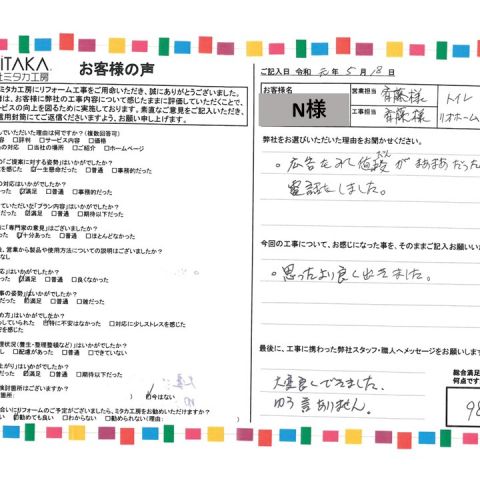 ITAKA
社ミタカ工房
お客様の声
ミタカ工房にリフォーム工事をご用命いただき、誠にありがとうございました。
は、お客様に弊社の工事内容について感じたままに評価していただくことで、
ビスの向上を図るために実施しております。素直なご意見をご記入いただき、
信用封筒にてご返信くださいますよう、お願い申し上げます。
んでいただいた理由は何ですか?(複数回答可)
容 □評判 □サービス内容 □価格
もの □当社の場所 □ご紹介 □ホームページ
の「ご提案に対する姿勢」はいかがでしたか?
を感じた □一生懸命だった □普通 □事務的だった
の対応」はいかがでしたか?
だった □満足 □普通 □事務的だった
ていただいた「プラン内容」はいかがでしたか?
だった □満足 □普通 □期待以下だった
に「専門家の意見」はございましたか?
かった □十分あった □普通 □ほとんどなかった
後、営業から製品や使用方法についての説明はございましたか?
なし
応」はいかがでしたか?
だった □満足 □普通 □良くなかった
事の姿勢」はいかがでしたか?
だった □満足 □普通 □雑だった
の方」はいかがでしたか?
していられた □特に不安はなかった □対応に少しストレスを感じた
を感じた
理状況(養生・整理整頓など)」はいかがでしたか?
し □配慮があった □できていない
上がり」はいかがでしたか?
だった □満足 □普通 □期待以下だった
検討箇所はございますか?
箇所: ) □今はない
会いにリフォームのご予定がございましたら、ミタカ工房をお勧めいただけますか?
い □勧めても良い □わからない □勧められない(理由: )
ご記入日 令和 元年 5月 18日
お客様名
N様
営業担当 斉藤様
工事担当 斉藤様
トイレ
リオホーム
弊社をお選びいただいた理由をお聞かせください。
・広告をみて値段がまあまあだった
電話をしました。
今回の工事について、お感じになった事を、そのままご記入お願いい
・思ったより良く出来ました。
最後に、工事に携わった弊社スタッフ・職人へメッセージをお願いします
大変良くできました。
ゆう言ありません。
総合満足
何点です
98